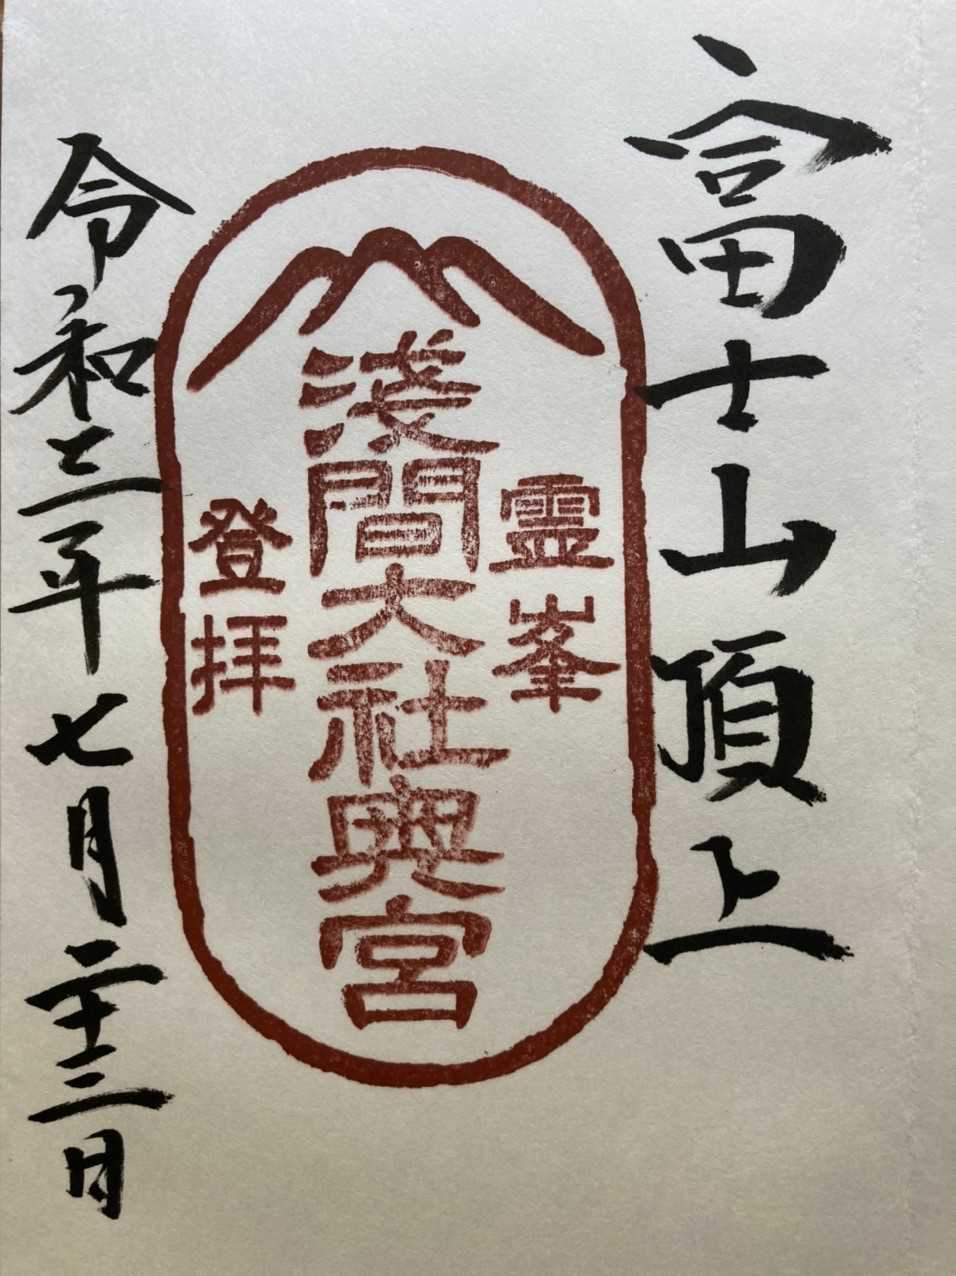 富士山頂上
霊峯
淺間大社奥宮
登拝
令和三年七月二十三日